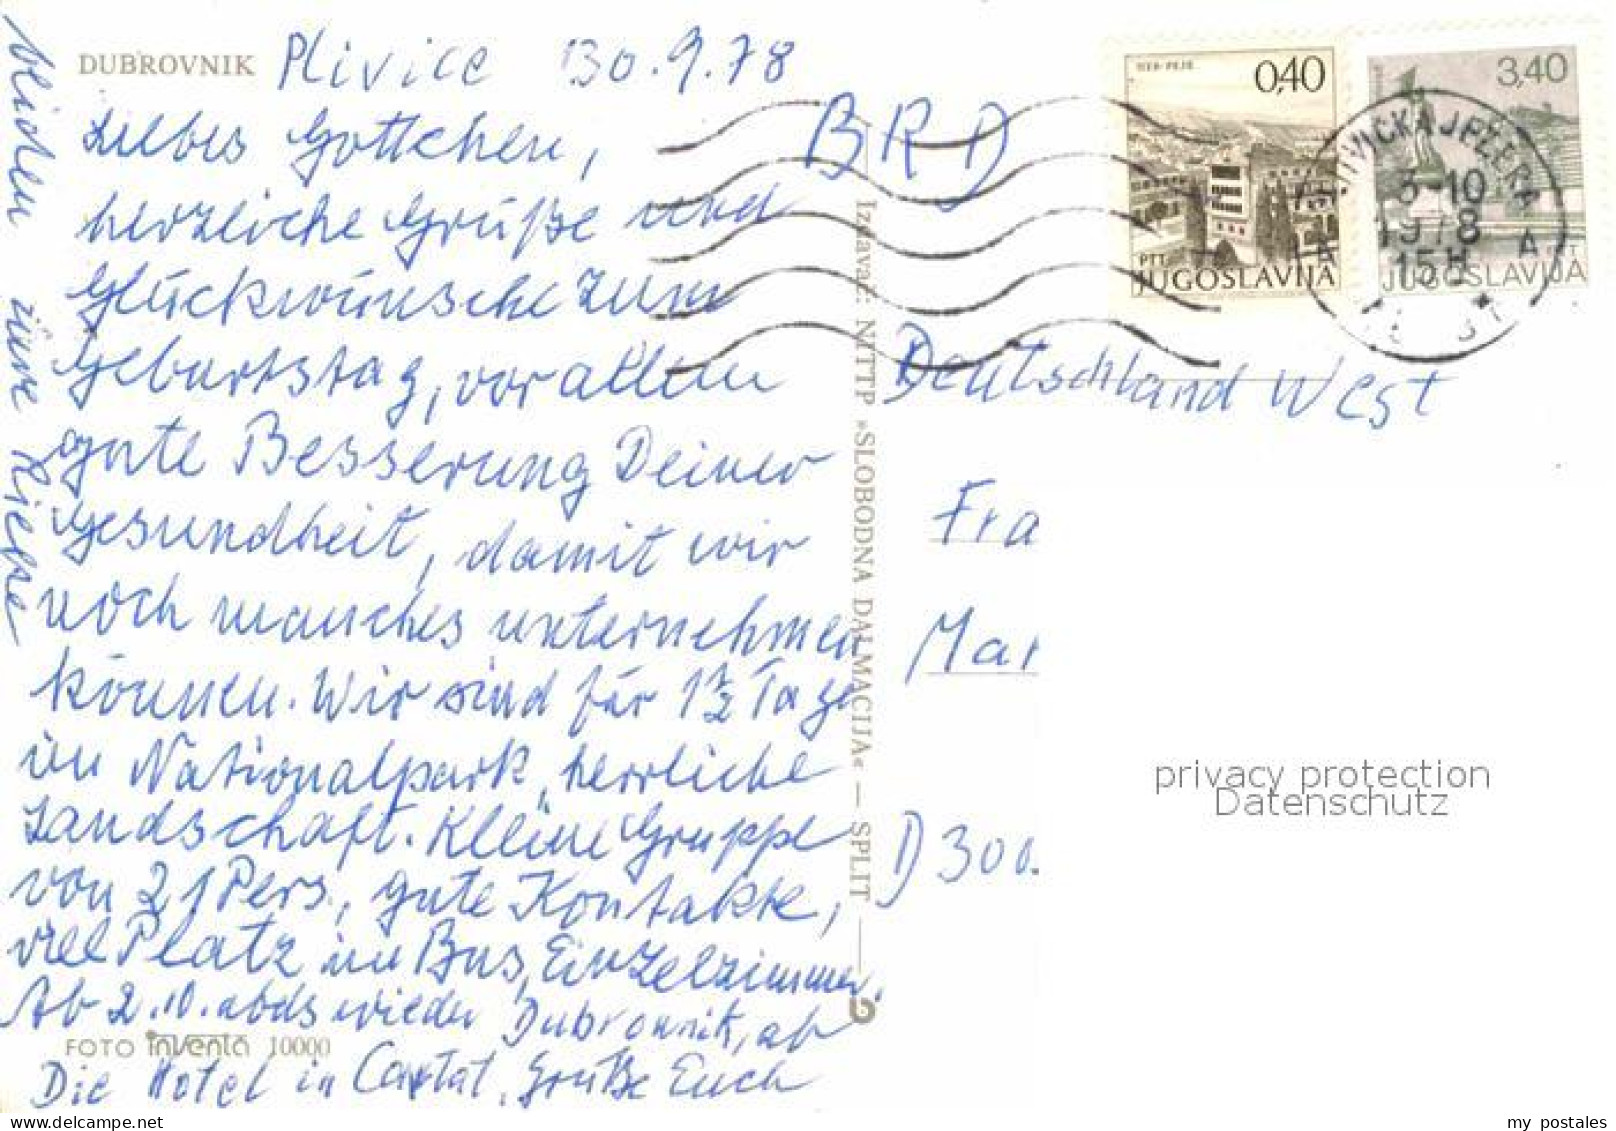 DUBROVNIK
Plivice 30.9.78
Liebes Gottchen,
herzliche Grüße und
Glückwünsche zum
Geburtstag, vor allem
gute Besserung Deiner
Gesundheit, damit wir
noch manches unternehmen
können. Wir sind für 1 1/2 Tage
im Nationalpark, herrliche
Landschaft. Kleine Gruppe
von 21 Pers., gute Kontakte,
viel Platz im Bus, Einzelzimmer.
Ab 2.10. abds wieder Dubrovnik, ab
FOTO inventa 10000
Die Hotel in Cavtat. Grüße Euch
eure
Izdavač: NITTP »SLOBODNA DALMACIJA« — SPLIT
BRD
Deutschland West
Fra
Mar
D 300
0,40
PTT
JUGOSLAVIJA
3,40
JUGOSLAVIJA
3-10
1978
15H
A
privacy protection
Datenschutz
my postales